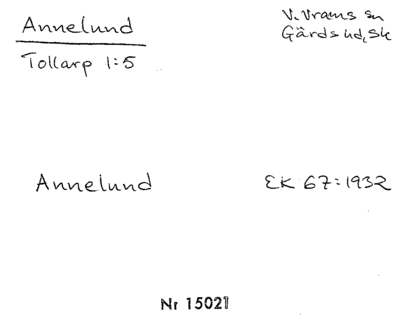 Annelund
V. Vrams sn
Tollarp 1:5
Gärds hd, Sk
Annelund
EK 67:1932
Nr 15021